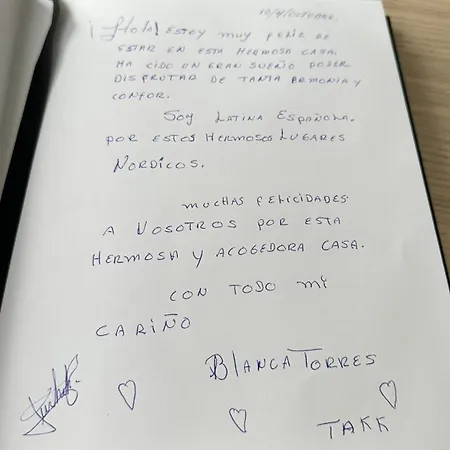 10/9/OCTUBRE.
¡Hola! Estoy muy feliz de
estar en esta hermosa casa.
Ha cido un gran sueño poder
disfrutar de tanta armonia y
confor.
Soy Latina Española.
por estos Hermosos Lugares
Nordicos.
muchas felicidades
a vosotros por esta
Hermosa y acogedora casa.
con todo mi
cariño
Blanca Torres
TAKK